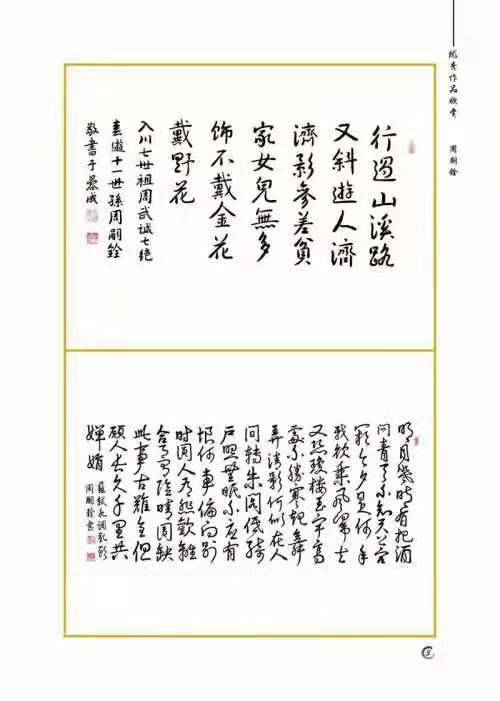 优秀作品欣赏
周嗣銓
行過山溪路
又斜遊人濟
濟影參差貧
家女兒無多
飾不戴金花
戴野花
入川七世祖周武诚七绝
十一世孫周嗣銓
敬書于蓉城
明月幾时有把酒
问青天不知天上宫
阙今夕是何年
我欲乘风归去
又恐琼楼玉宇高
处不勝寒起舞
弄清影何似在人
间转朱阁低绮
户照無眠不应有
恨何事偏向别
时圆人有悲歡離
合月有陰晴圆缺
此事古難全但
願人長久千里共
嬋娟
蘇軾水调歌头
周嗣銓書
5